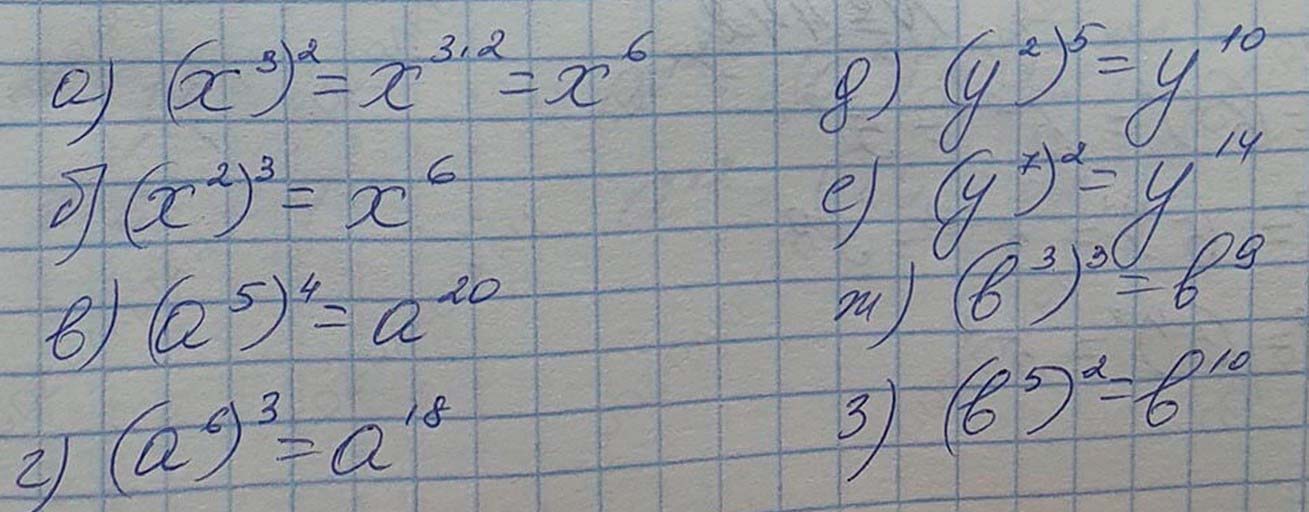 а) (x³)² = x³·² = x⁶
б) (x²)³ = x⁶
в) (a⁵)⁴ = a²⁰
г) (a⁶)³ = a¹⁸
д) (y²)⁵ = y¹⁰
е) (y⁷)² = y¹⁴
ж) (b³)³ = b⁹
з) (b⁵)² = b¹⁰